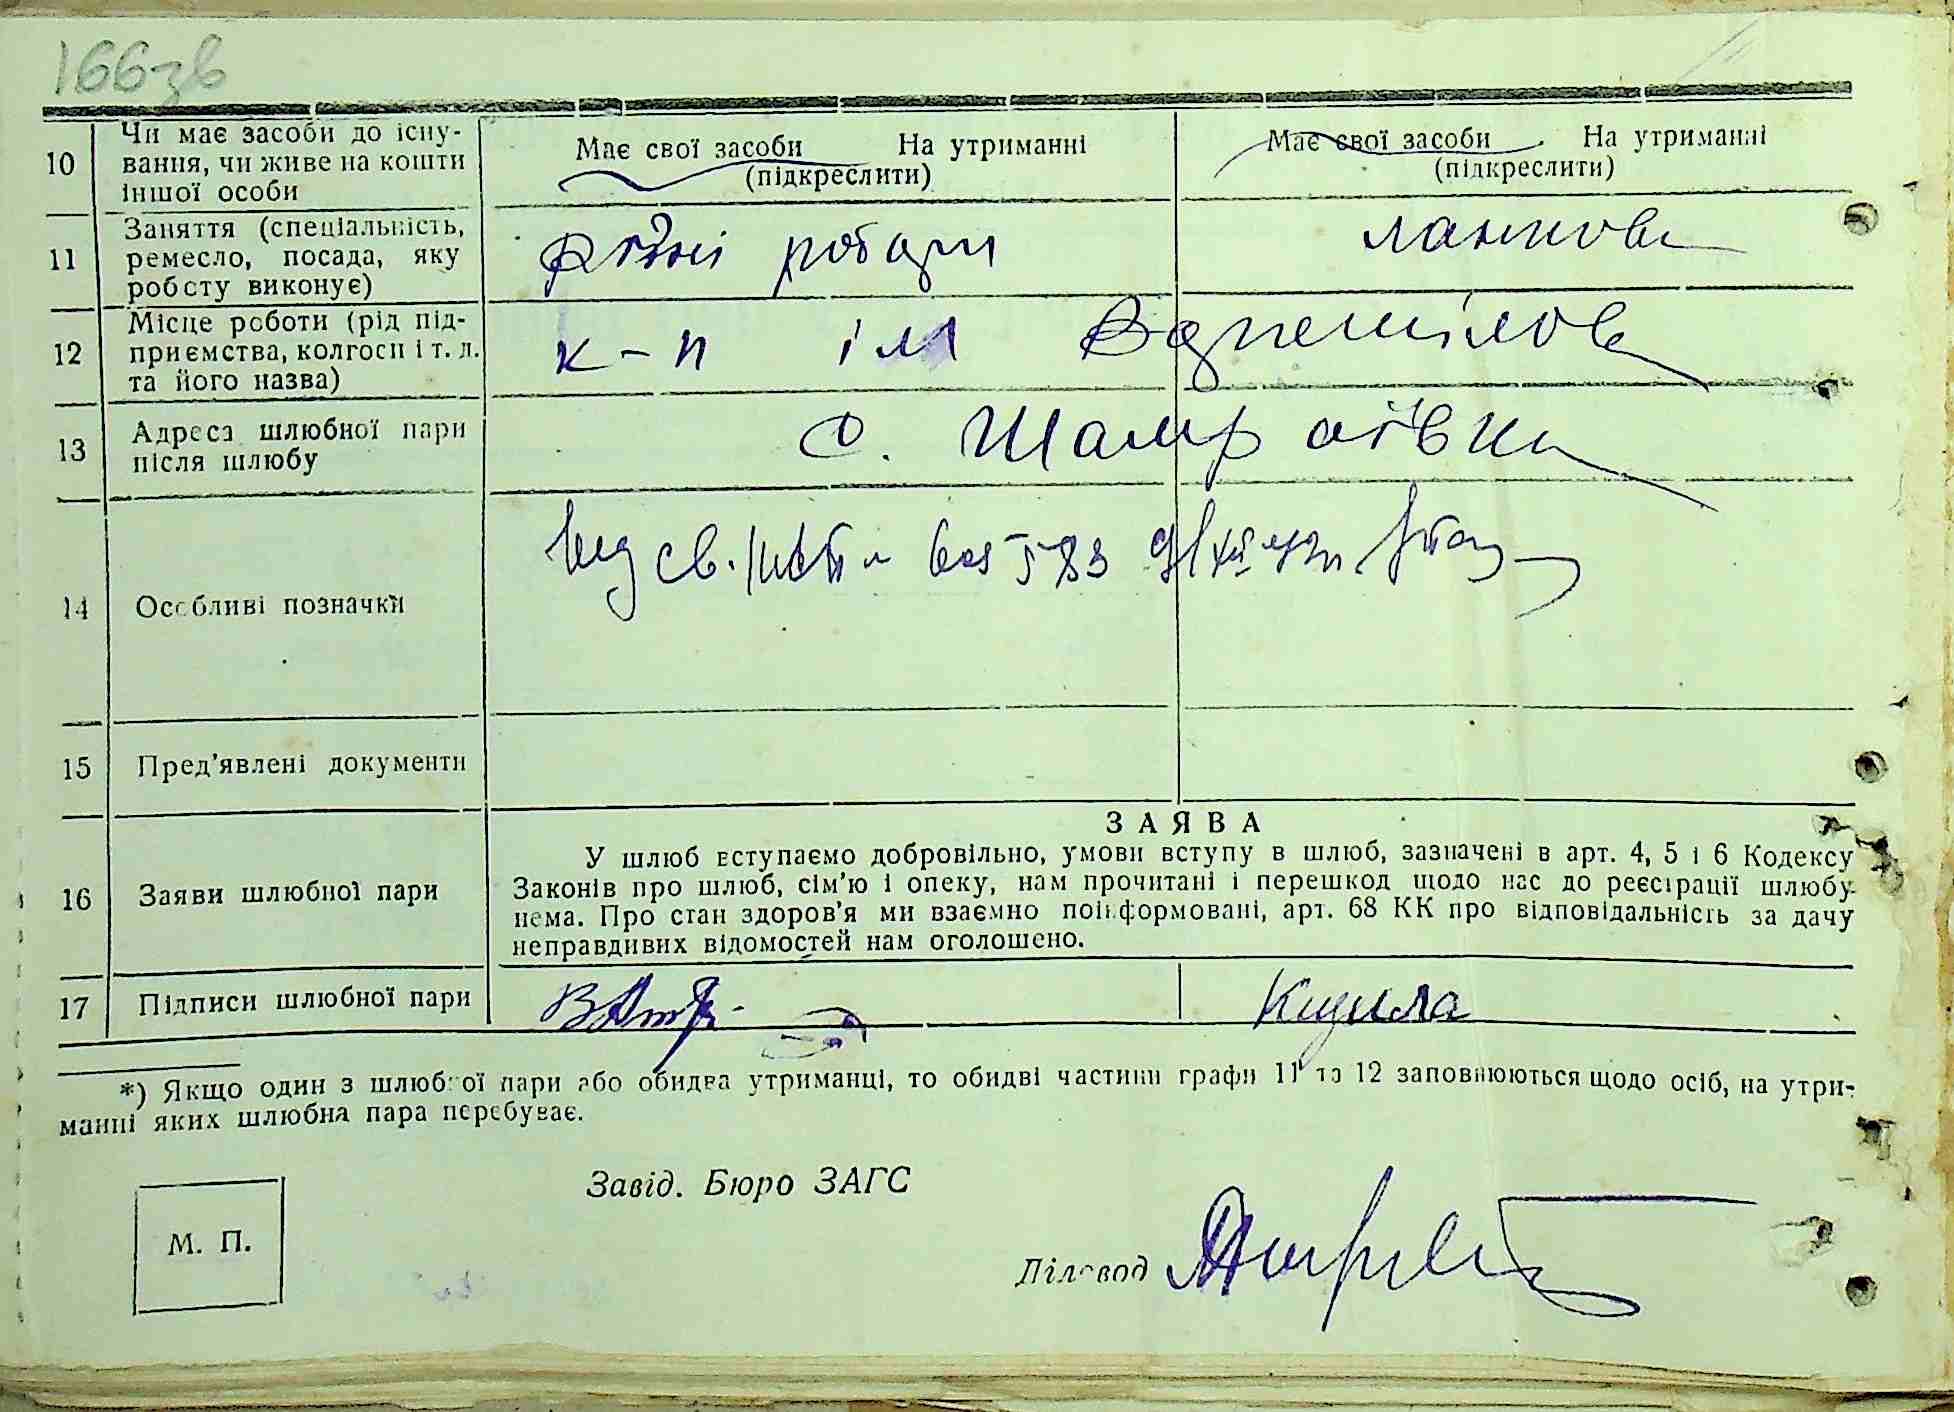 166зв
10 Чи має засоби до існу-
вання, чи живе на кошти
іншої особи
Має свої засоби На утриманні
(підкреслити)
Має свої засоби На утриманні
(підкреслити)
11 Заняття (спеціальність,
ремесло, посада, яку
роботу виконує)
різні роботи
ланкова
12 Місце роботи (рід під-
приємства, колгосп і т. д.
та його назва)
к-п ім Ворошилова
13 Адреса шлюбної пари
після шлюбу
с. Шамраївка
14 Особливі позначки
св.
15 Пред'явлені документи
16 Заяви шлюбної пари
ЗАЯВА
У шлюб вступаємо добровільно, умови вступу в шлюб, зазначені в арт. 4, 5 і 6 Кодексу
Законів про шлюб, сім'ю і опеку, нам прочитані і перешкод щодо нас до реєстрації шлюбу
нема. Про стан здоров'я ми взаємно поінформовані, арт. 68 КК про відповідальність за дачу
неправдивих відомостей нам оголошено.
17 Підписи шлюбної пари
*) Якщо один з шлюбної пари або обидва утриманці, то обидві частини графи 11 та 12 заповнюються щодо осіб, на утри-
манні яких шлюбна пара перебуває.
Завід. Бюро ЗАГС
М. П.
Діловод